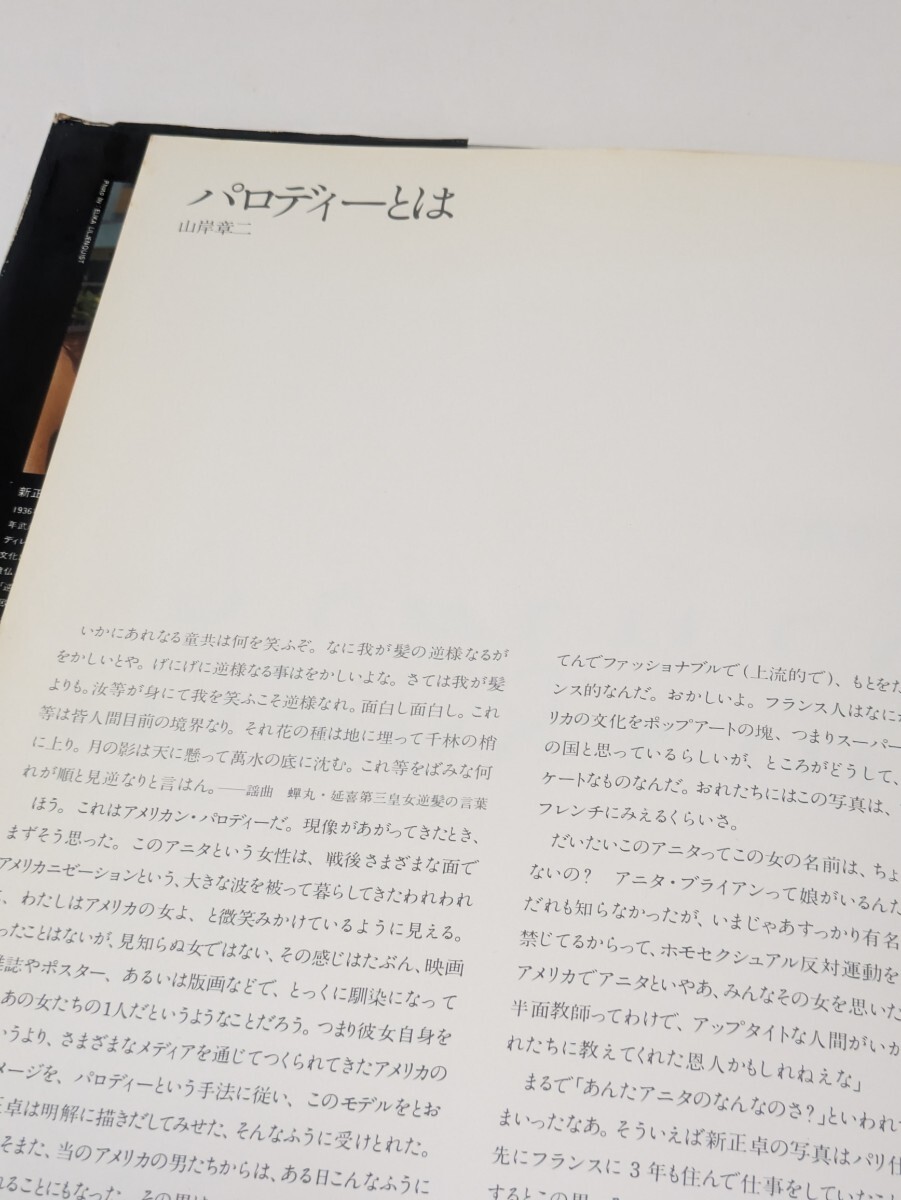 パロディーとは
山岸章二
Photo by EIKA LILJENQUIST
新正
1936
年武
ディレ
文化
いかにあれなる童共は何を笑ふぞ。なに我が髪の逆様なるが
をかしいとや。げにげに逆様なる事はをかしいよな。さては我が髪
よりも。汝等が身にて我を笑ふこそ逆様なれ。面白し面白し。これ
等は皆人間目前の境界なり。それ花の種は地に埋って千林の梢
に上り。月の影は天に懸って萬水の底に沈む。これ等をばみな何
れが順と見逆なりと言はん。——謡曲　蟬丸・延喜第三皇女逆髪の言葉
ほう。これはアメリカン・パロディーだ。現像があがってきたとき、
まずそう思った。このアニタという女性は、戦後さまざまな面で
アメリカニゼーションという、大きな波を被って暮らしてきたわれわれ
、わたしはアメリカの女よ、と微笑みかけているように見える。
ったことはないが、見知らぬ女ではない、その感じはたぶん、映画
誌やポスター、あるいは版画などで、とっくに馴染になって
あの女たちの1人だというようなことだろう。つまり彼女自身を
いうより、さまざまなメディアを通じてつくられてきたアメリカの
メージを、パロディーという手法に従い、このモデルをとお
正卓は明解に描きだしてみせた、そんなふうに受けとれた。
そまた、当のアメリカの男たちからは、ある日こんなふうに
れることにもなった。その男は
てんでファッショナブルで（上流的で）、もとをた
ンス的なんだ。おかしいよ。フランス人はなにか
リカの文化をポップアートの塊、つまりスーパー
の国と思っているらしいが、ところがどうして、
ケートなものなんだ。おれたちにはこの写真は、
フレンチにみえるくらいさ。
だいたいこのアニタってこの女の名前は、ちょ
ないの？　アニタ・ブライアンって娘がいるんだ
だれも知らなかったが、いまじゃあすっかり有名
禁じてるからって、ホモセクシュアル反対運動を
アメリカでアニタといやあ、みんなその女を思いだ
半面教師ってわけで、アップタイトな人間がいか
れたちに教えてくれた恩人かもしれねえな」
まるで「あんたアニタのなんなのさ？」といわれて
まいったなあ。そういえば新正卓の写真はパリ仕
先にフランスに3年も住んで仕事をしていたこ
するとこの男